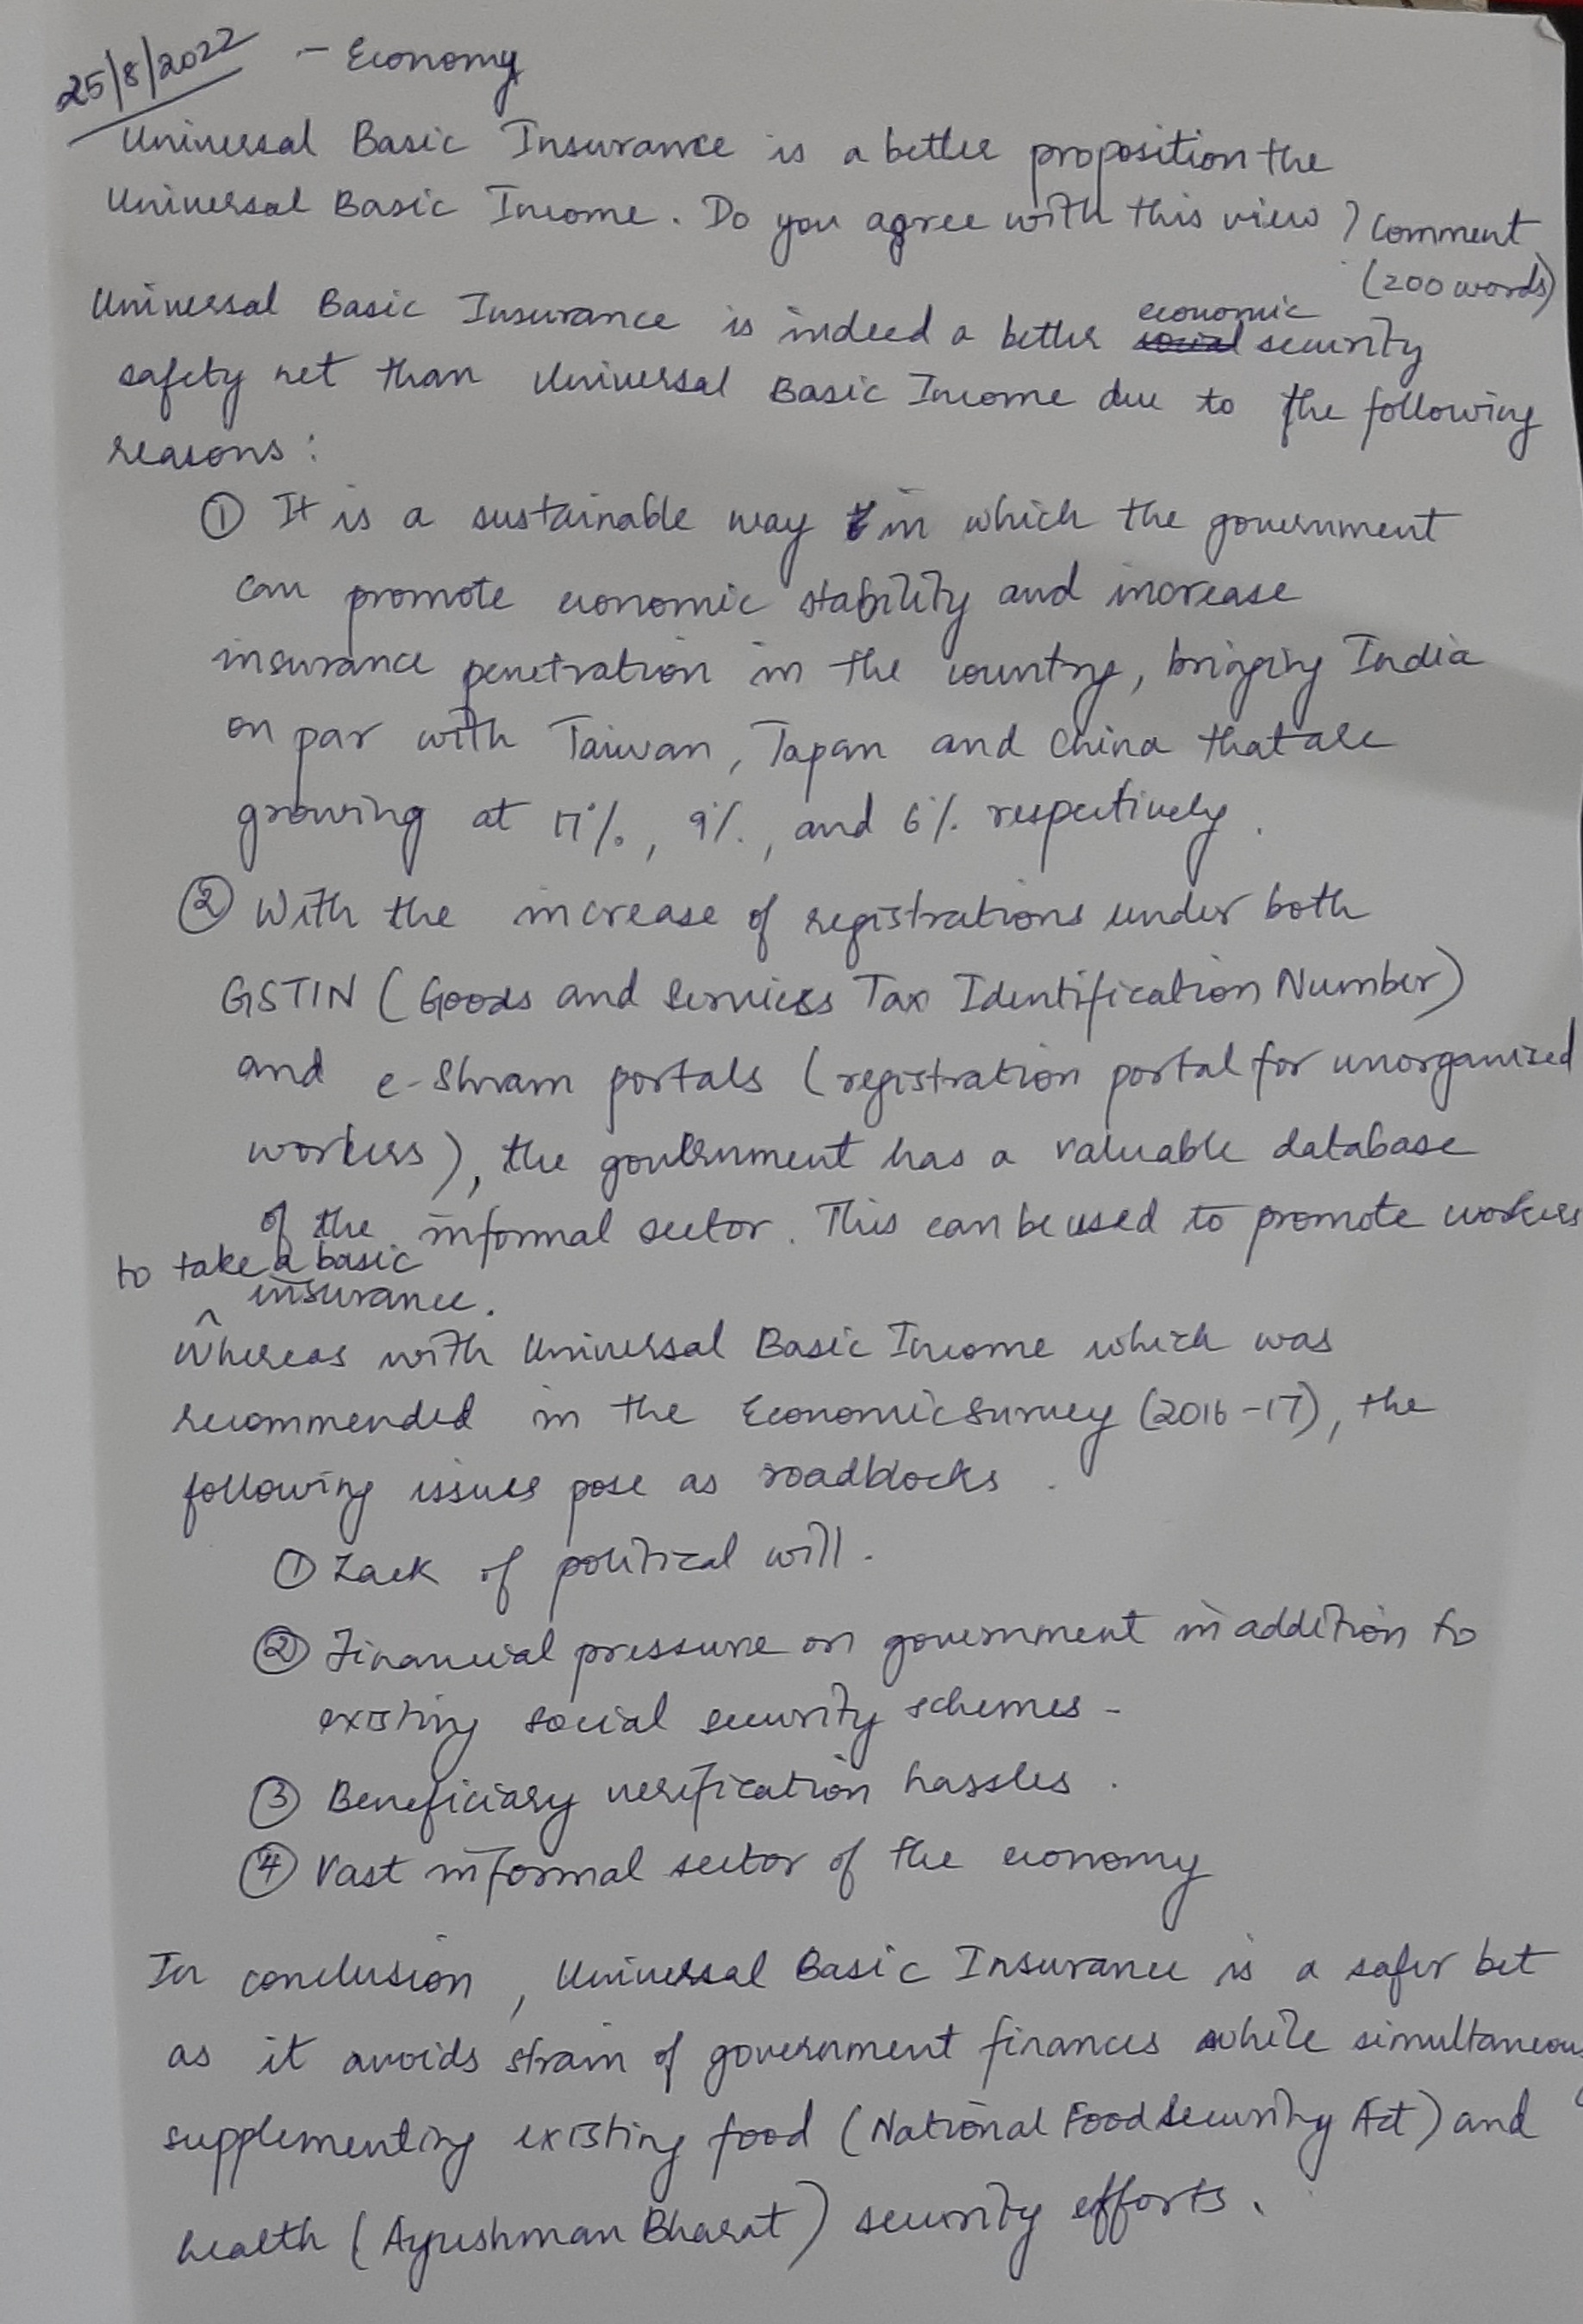 25/8/2022 - Economy
Universal Basic Insurance is a better proposition the
Universal Basic Income. Do you agree with this view? Comment
(200 words)
Universal Basic Insurance is indeed a better economic security
safety net than Universal Basic Income due to the following
reasons:
① It is a sustainable way in which the government
can promote economic stability and increase
insurance penetration in the country, bringing India
on par with Taiwan, Japan and China that are
growing at 17%, 9%, and 6% respectively.
② With the increase of registrations under both
GSTIN (Goods and Services Tax Identification Number)
and e-Shram portals (registration portal for unorganised
workers), the government has a valuable database
of the informal sector. This can be used to promote workers
to take a basic
insurance.
Whereas with Universal Basic Income which was
recommended in the Economic survey (2016-17), the
following issues pose as roadblocks.
① Lack of political will.
② Financial pressure on government in addition to
existing social security schemes -
③ Beneficiary verification hassles.
④ Vast informal sector of the economy
In conclusion, Universal Basic Insurance is a safer bet
as it avoids strain of government finances while simultaneously
supplementing existing food (National Food Security Act) and
health (Ayushman Bharat) security efforts.